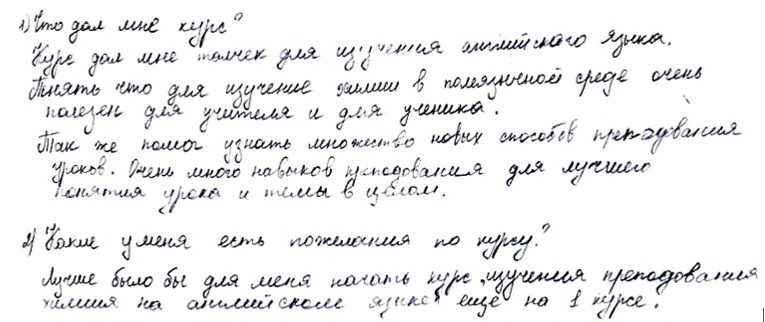 1) Что дал мне курс?
Курс дал мне толчек для изучения английского языка.
Понять что для изучение химии в полеязычной среде очень
полезен для учителя и для ученика.
Так же помог узнать множество новых способов преподования
уроков. Очень много навыков преподования для лучшего
понятия урока и темы в целом.
2) Какие у меня есть пожелания по курсу?
Лучше было бы для меня начать курс „изучения преподования
химия на английском языке" еще на 1 курсе.